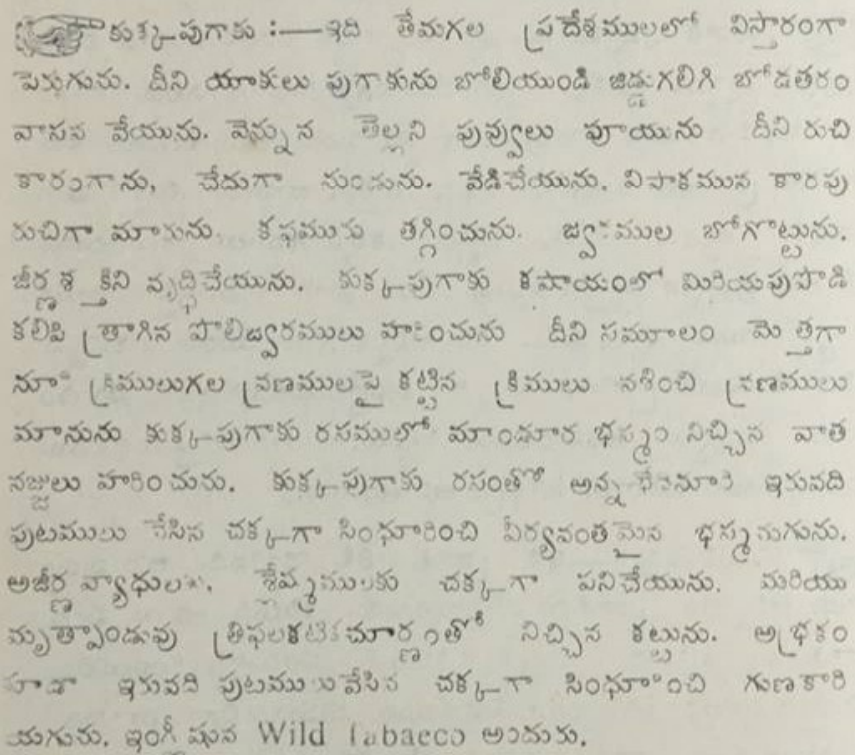 కుక్కపుగాకు :—ఇది తేమగల ప్రదేశములలో విస్తారంగా
పెరుగును. దీని యాకులు పుగాకును బోలియుండి జిడ్డుగలిగి బోడతరం
వాసన వేయును. వెన్నున తెల్లని పువ్వులు పూయును దీని రుచి
కారంగాను, చేదుగా నుండును. వేడిచేయును. విపాకమున కారపు
రుచిగా మారును. కఫమును తగ్గించును. జ్వరముల బోగొట్టును.
జీర్ణశక్తిని వృద్ధిచేయును. కుక్కపుగాకు కషాయంలో మిరియపుపొడి
కలిపి త్రాగిన పొలిజ్వరములు హరించును దీని సమూలం మెత్తగా
నూరి క్రిములుగల వ్రణములపై కట్టిన క్రిములు నశించి వ్రణములు
మానును కుక్కపుగాకు రసములో మాండూర భస్మం నిచ్చిన వాత
నజ్జులు హరించును. కుక్కపుగాకు రసంతో అన్న ఇరువది
పుటములు వేసిన చక్కగా సింధూరించి వీర్యవంతమైన భస్మమగును.
అజీర్ణ వ్యాధులకు. శ్లేష్మములకు చక్కగా పనిచేయును. మరియు
మృత్పాండువు త్రిఫలకటికచూర్ణంతో నిచ్చిన కట్టును. అభ్రకం
కూడా ఇరువది పుటములువేసిన చక్కగా సింధూరించి గుణకారి
యగును. ఇంగ్లీషున Wild Tabacco అందురు.